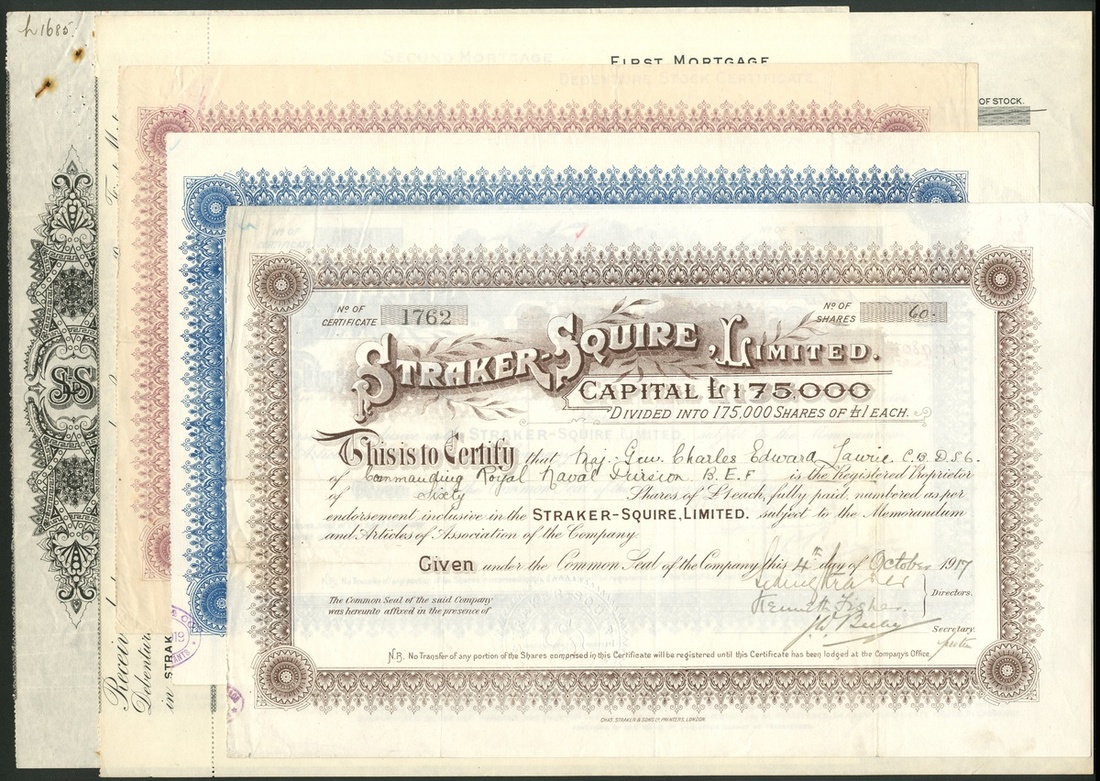 h1685.
SECOND MORTGAGE
FIRST MORTGAGE
DEBENTURE STOCK CERTIFICATE
OF STOCK.
SS
No OF CERTIFICATE 1762
No OF SHARES 60.
STRAKER-SQUIRE, LIMITED.
CAPITAL £175,000
DIVIDED INTO 175,000 SHARES OF £1 EACH.
This is to Certify that Maj. Gen. Charles Edward Lawrie C.B. D.S.O.
of Commanding Royal Naval Division B.E.F is the Registered Proprietor
of sixty Shares of £1 each, fully paid, numbered as per
endorsement inclusive in the STRAKER-SQUIRE, LIMITED. subject to the Memorandum
and Articles of Association of the Company.
Given under the Common Seal of the Company this 4th day of October 1917
Sidney Straker
Kenneth Fisher.
Directors.
The Common Seal of the said Company
was hereunto affixed in the presence of
Secretary.
N.B. No Transfer of any portion of the Shares comprised in this Certificate will be registered until this Certificate has been lodged at the Company's Office.
CHAS. STRAKER & SONS LD. PRINTERS, LONDON.
Receiv
Debentur
in STRAK